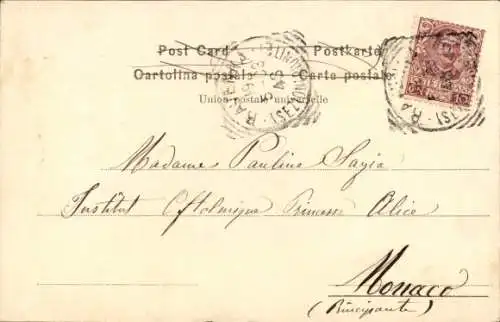 Post Card Postkarte
Cartolina postale Carte postale
Union postale universelle
Madame Pauline Sagia
Institut Oftolmique Princesse Alice
Monaco
(Principauté)